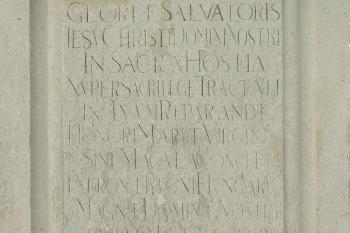 GLORIÆ SALVATORIS
IESV CHRISTI DOMINI NOSTRI
IN SACRA HOSTIA
NVPER SACRILEGE TRACTATI
REPARANDÆ
HONORI MARIÆ VIRGINIS
SINE MACVLA CONCEPTÆ
PATRONÆ REGNI HVNGARIÆ
MAGNÆ DOMINÆ NOSTRÆ